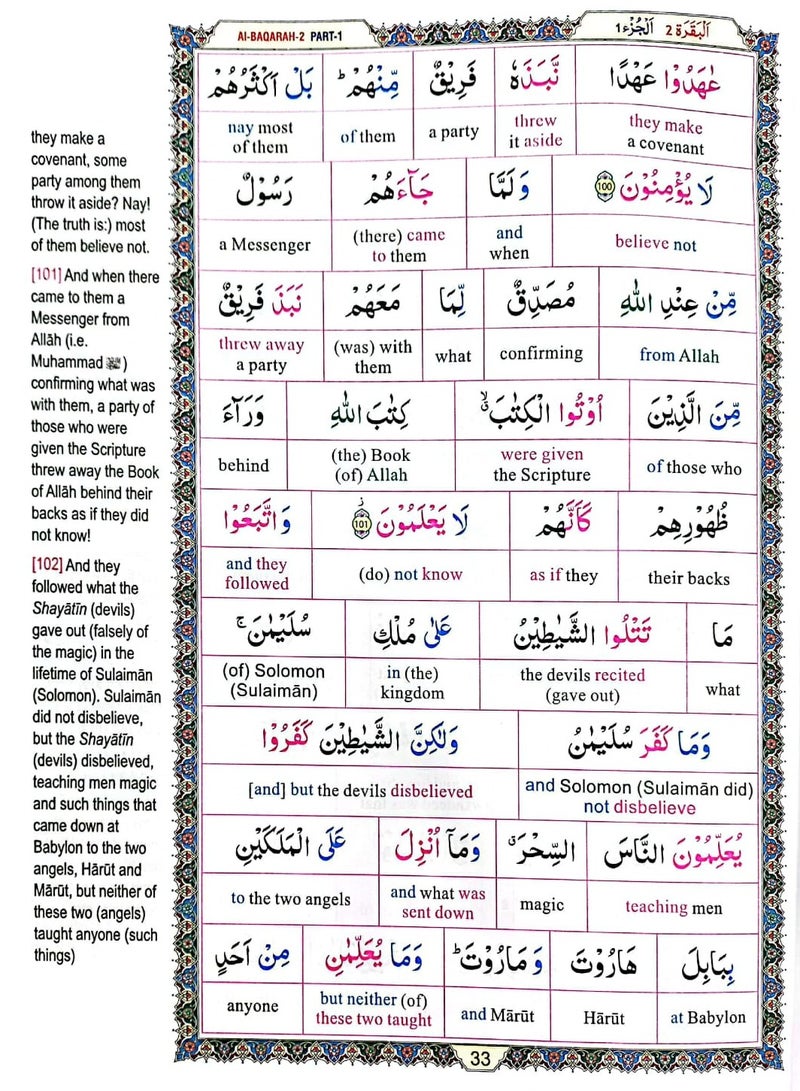 Al-BAQARAH-2 PART-1
اَلْجُزْء 1 اَلْبَقَرَة 2
they make a
covenant, some
party among them
throw it aside? Nay!
(The truth is:) most
of them believe not.
[101] And when there
came to them a
Messenger from
Allāh (i.e.
Muhammad ﷺ)
confirming what was
with them, a party of
those who were
given the Scripture
threw away the Book
of Allāh behind their
backs as if they did
not know!
[102] And they
followed what the
Shayātīn (devils)
gave out (falsely of
the magic) in the
lifetime of Sulaimān
(Solomon). Sulaimān
did not disbelieve,
but the Shayātīn
(devils) disbelieved,
teaching men magic
and such things that
came down at
Babylon to the two
angels, Hārūt and
Mārūt, but neither of
these two (angels)
taught anyone (such
things)
عٰهَدُوْا عَهْدًا نَّبَذَهٗ فَرِيْقٌ مِّنْهُمْ ؕ بَلْ اَكْثَرُهُمْ
nay most of them a party threw they make
of them it aside a covenant
لَا يُؤْمِنُوْنَ 100 وَ لَمَّا جَآءَهُمْ رَسُوْلٌ
a Messenger (there) came and believe not
to them when
مِّنْ عِنْدِ اللّٰهِ مُصَدِّقٌ لِّمَا مَعَهُمْ نَبَذَ فَرِيْقٌ
threw away (was) with what confirming from Allah
a party them
مِّنَ الَّذِيْنَ اُوْتُوا الْكِتٰبَ ۙ كِتٰبَ اللّٰهِ وَرَآءَ
behind (the) Book were given of those who
(of) Allah the Scripture
ظُهُوْرِهِمْ كَاَنَّهُمْ لَا يَعْلَمُوْنَ 101 ز وَاتَّبَعُوْا
and they (do) not know as if they their backs
followed
مَا تَتْلُوا الشَّيٰطِيْنُ عَلٰى مُلْكِ سُلَيْمٰنَ ۚ
(of) Solomon in (the) the devils recited what
(Sulaimān) kingdom (gave out)
وَمَا كَفَرَ سُلَيْمٰنُ وَلٰكِنَّ الشَّيٰطِيْنَ كَفَرُوْا
[and] but the devils disbelieved and Solomon (Sulaimān did)
not disbelieve
يُعَلِّمُوْنَ النَّاسَ السِّحْرَ ۗ وَمَاۤ اُنْزِلَ عَلَى الْمَلَكَيْنِ
to the two angels and what was magic teaching men
sent down
بِبَابِلَ هَارُوْتَ وَ مَارُوْتَ ؕ وَمَا يُعَلِّمٰنِ مِنْ اَحَدٍ
anyone but neither (of) and Mārūt Hārūt at Babylon
these two taught
33